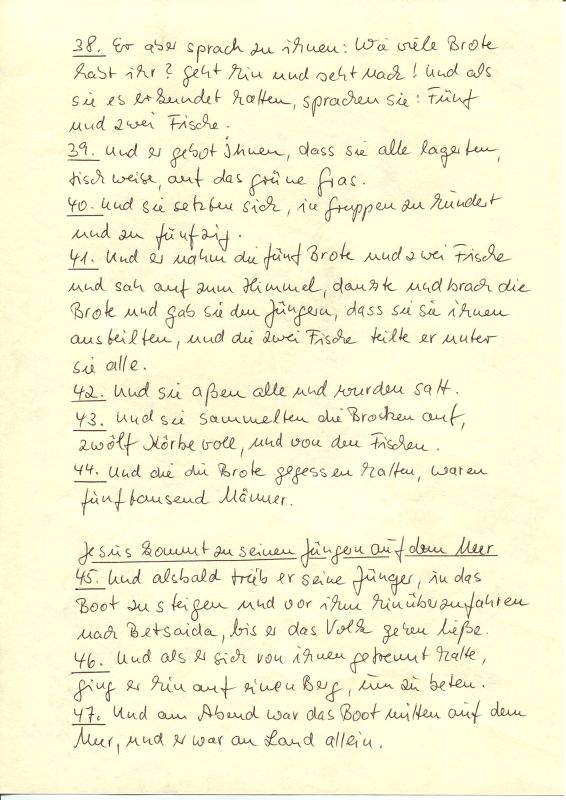 38. Er aber sprach zu ihnen: Wie viele Brote
habt ihr? Geht hin und seht nach! Und als
sie es erkundet hatten, sprachen sie: Fünf
und zwei Fische.
39. Und er gebot ihnen, dass sie alle lagerten,
tischweise, auf das grüne Gras.
40. Und sie setzten sich, in Gruppen zu hundert
und zu fünfzig.
41. Und er nahm die fünf Brote und zwei Fische
und sah auf zum Himmel, dankte und brach die
Brote und gab sie den Jüngern, dass sie sie ihnen
austeilten, und die zwei Fische teilte er unter
sie alle.
42. Und sie aßen alle und wurden satt.
43. Und sie sammelten die Brocken auf,
zwölf Körbe voll, und von den Fischen.
44. Und die die Brote gegessen hatten, waren
fünftausend Männer.
Jesus kommt zu seinen Jüngern auf dem Meer
45. Und alsbald trieb er seine Jünger, in das
Boot zu steigen und vor ihm hinüberzufahren
nach Betsaida, bis er das Volk gehen ließe.
46. Und als er sich von ihnen getrennt hatte,
ging er hin auf einen Berg, um zu beten.
47. Und am Abend war das Boot mitten auf dem
Meer, und er war an Land allein.